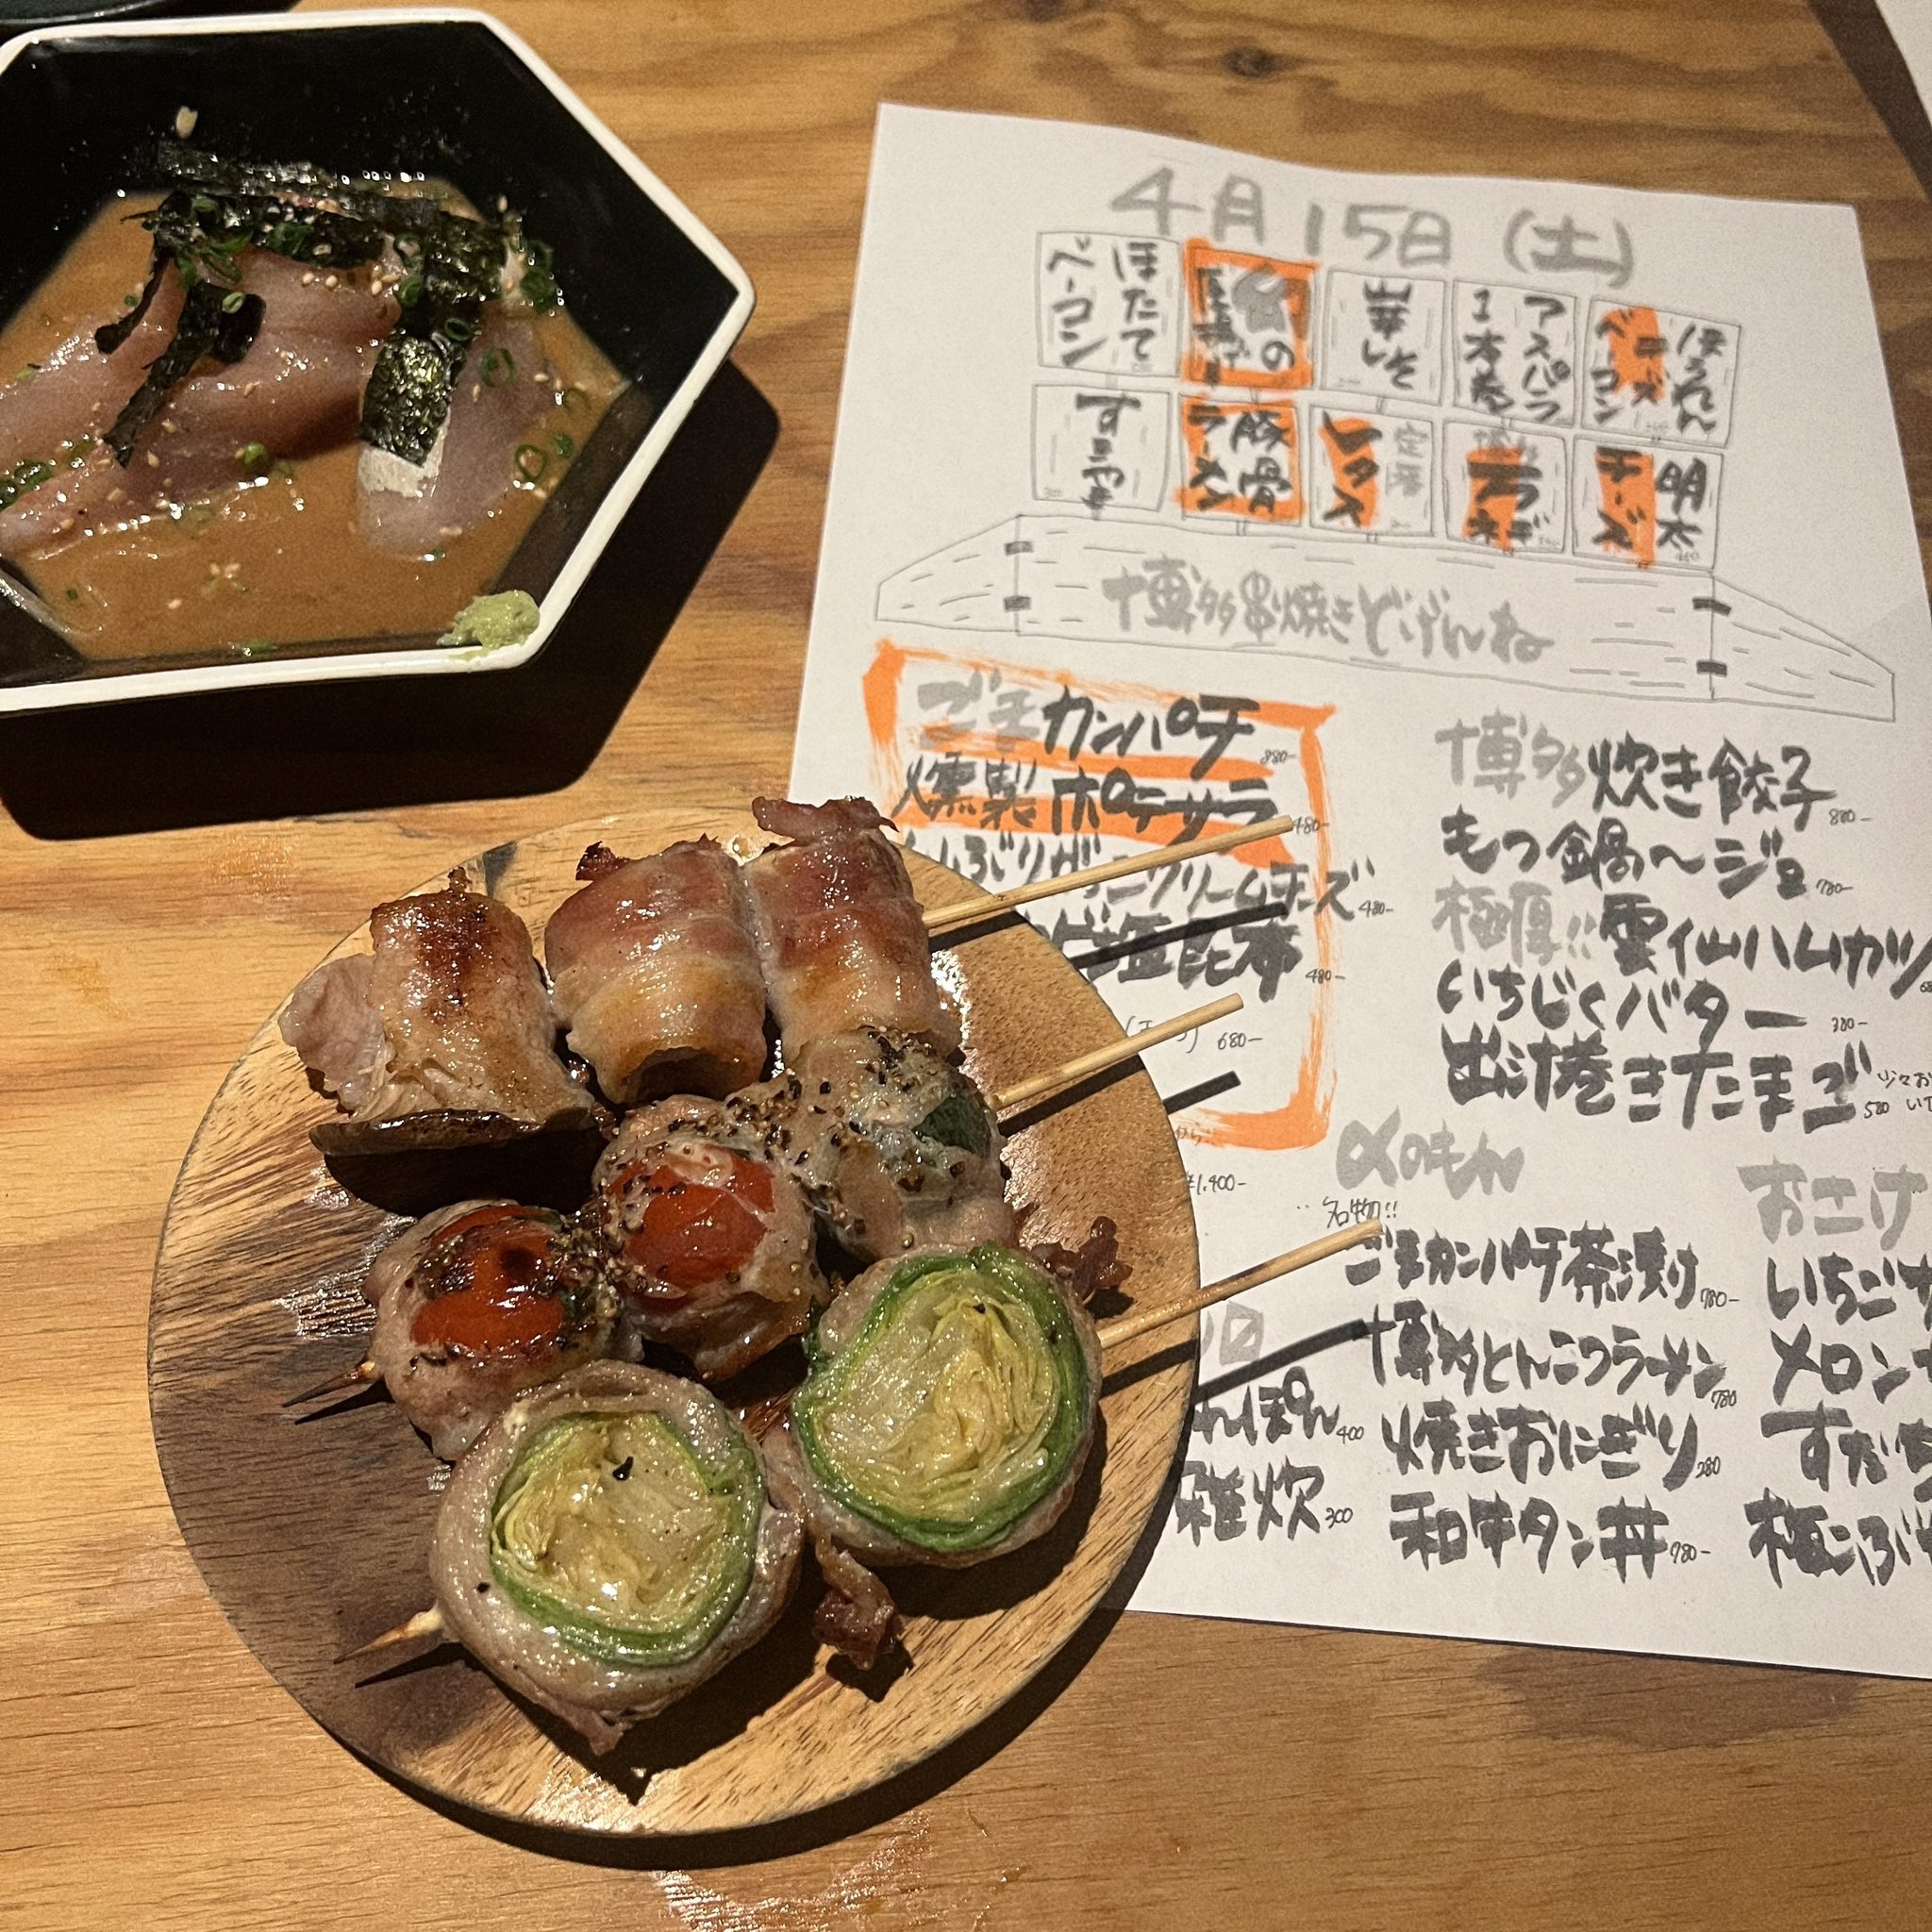 4月15日(土)
ほたて
ベーコン
の
山芋しそ
アスパラ
1本巻
ほうれん
チーズ
ベーコン
すきやき
豚骨
ラーメン
定番
レタス
万ネギ
明太
チーズ
博多串焼きどげんね
ごまカンパチ 880-
燻製ポテサラ 480-
いぶりがっこクリームチーズ 480-
塩昆布 480-
680-
¥1,400-
博多炊き餃子 880-
もつ鍋〜ジョ 780-
極厚!!雲仙ハムカツ
いちじくバター 380-
出汁巻きたまご 580
〆のもん
名物!!
ごまカンパチ茶漬け 780-
博多とんこつラーメン 780
焼きおにぎり 280
和牛タン丼 780-
んぽん 400
雑炊 300
おこげ
いちご
メロン
すだち